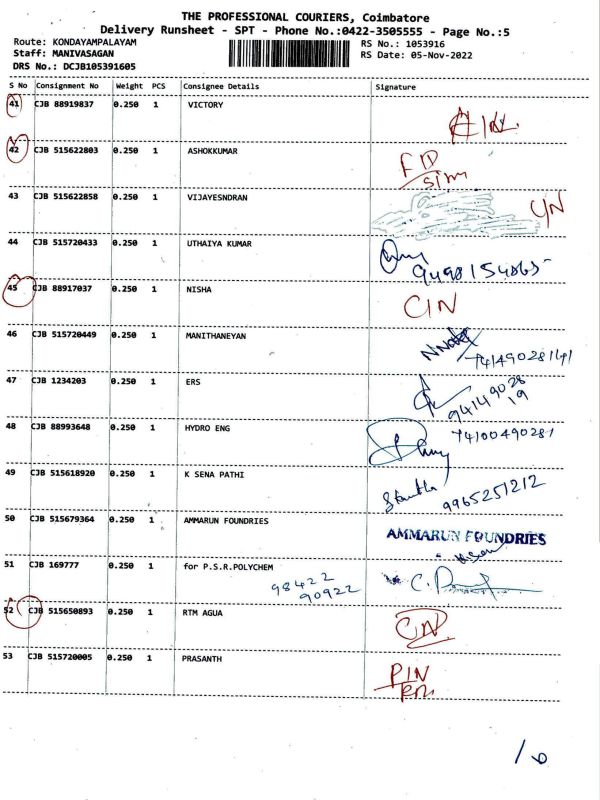 THE PROFESSIONAL COURIERS, Coimbatore
Delivery Runsheet - SPT - Phone No.:0422-3505555 - Page No.:5
Route: KONDAYAMPALAYAM RS No.: 1053916
Staff: MANIVASAGAN RS Date: 05-Nov-2022
DRS No.: DCJB105391605
S No Consignment No Weight PCS Consignee Details Signature
41 CJB 88919837 0.250 1 VICTORY
42 CJB 515622803 0.250 1 ASHOKKUMAR
43 CJB 515622858 0.250 1 VIJAYESNDRAN
44 CJB 515720433 0.250 1 UTHAIYA KUMAR
45 CJB 88917037 0.250 1 NISHA CIN
46 CJB 515720449 0.250 1 MANITHANEYAN
47 CJB 1234203 0.250 1 ERS
48 CJB 88993648 0.250 1 HYDRO ENG 74100490281
49 CJB 515618920 0.250 1 K SENA PATHI 9965251212
50 CJB 515679364 0.250 1 AMMARUN FOUNDRIES AMMARUN FOUNDRIES
51 CJB 169777 0.250 1 for P.S.R.POLYCHEM
98422
90922
52 CJB 515650893 0.250 1 RTM AGUA
53 CJB 515720005 0.250 1 PRASANTH